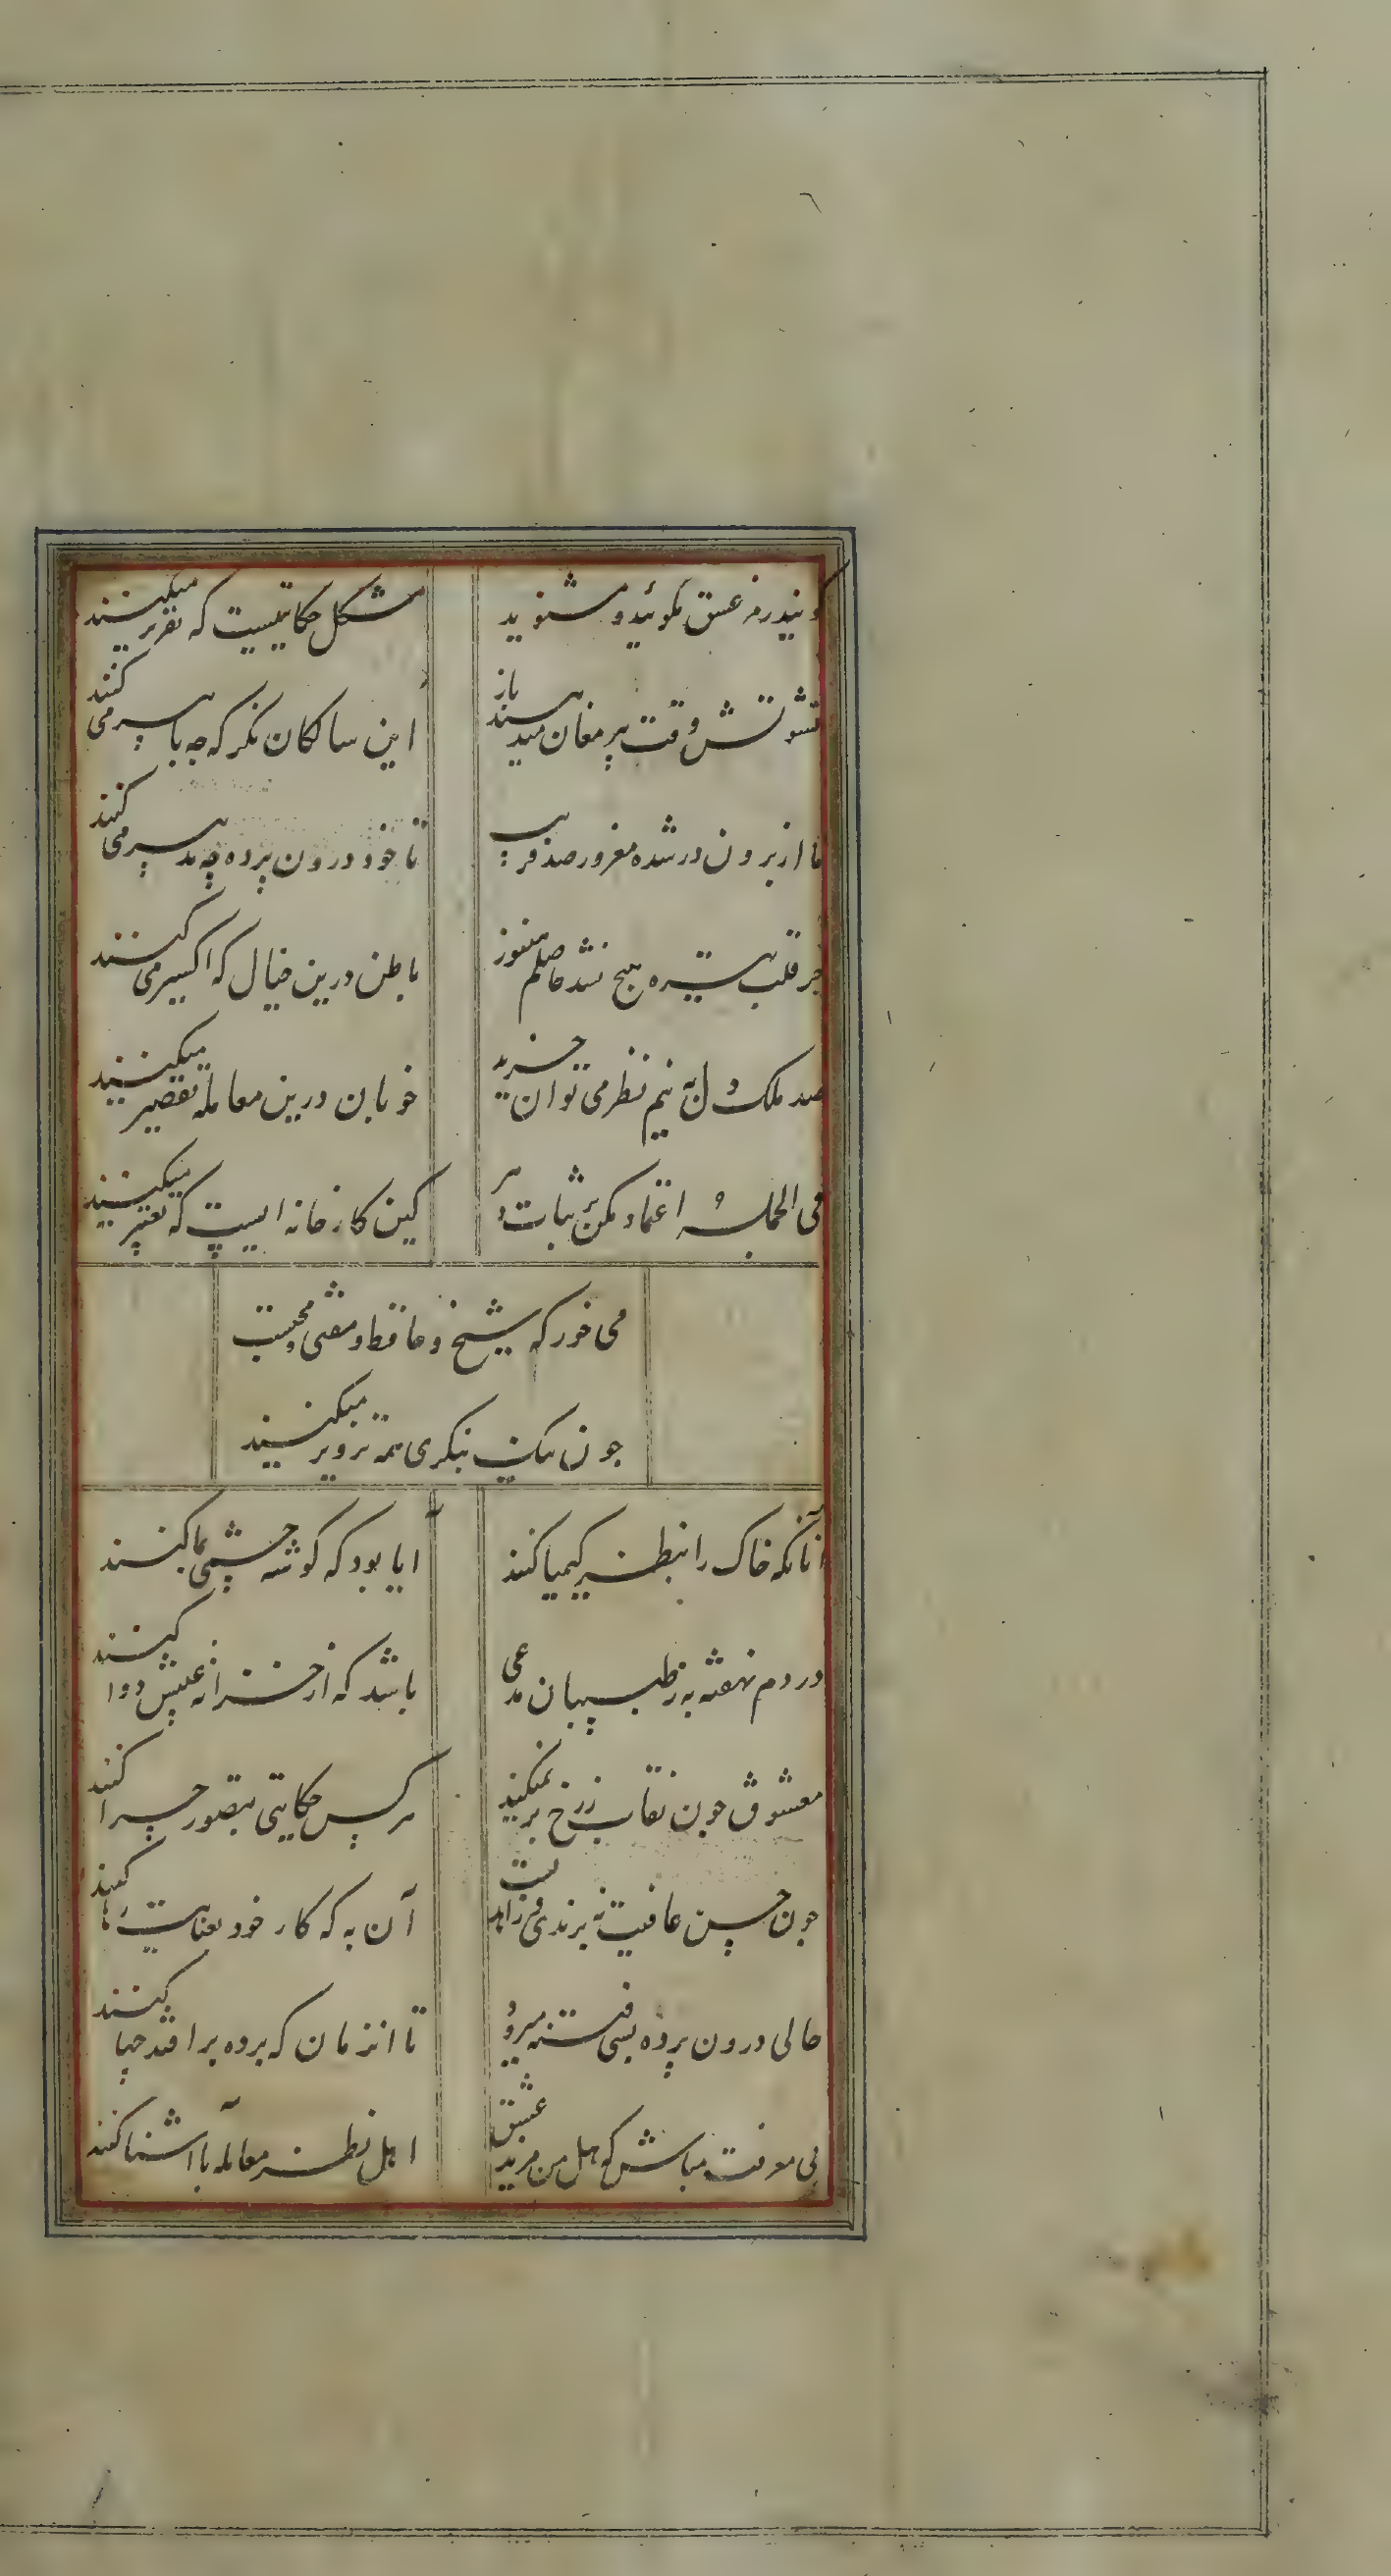 گویند رمز عشق مگوئید و مشنوید
مشکل حکایتیست که تقریر میکنند
تشویش وقت پیر مغان میدهند باز
این سالکان نگر که چه با پیر می کنند
ما از برون در شده مغرور صد فریب
تا خود درون پرده چه تدبیر می کنند
جز قلب تیره هیچ نشد حاصلم هنوز
باطن درین خیال که اکسیر می کنند
صد ملک دل به نیم نظر می توان خرید
خوبان درین معامله تقصیر میکنند
فی الجمله اعتماد مکن بر ثبات دهر
کین کارخانه ایست که تغییر میکنند
می خور که شیخ و حافظ و مفتی و محتسب
چون نیک بنگری همه تزویر میکنند
آنانکه خاک را بنظر کیمیا کنند
ایا بود که گوشه چشمی بما کنند
دردم نهفته به ز طبیبان مدعی
باشد که از خزانه غیبش دوا کنند
معشوق چون نقاب ز رخ بر نمیکشد
هر کس حکایتی بتصور چرا کنند
چون حسن عاقبت نه برندی و زاهدیست
آن به که کار خود بعنایت رها کنند
حالی درون پرده بسی فتنه میرود
تا انزمان که پرده برافتد چها کنند
بی معرفت مباش که در من مزید عشق
اهل نظر معامله با آشنا کنند